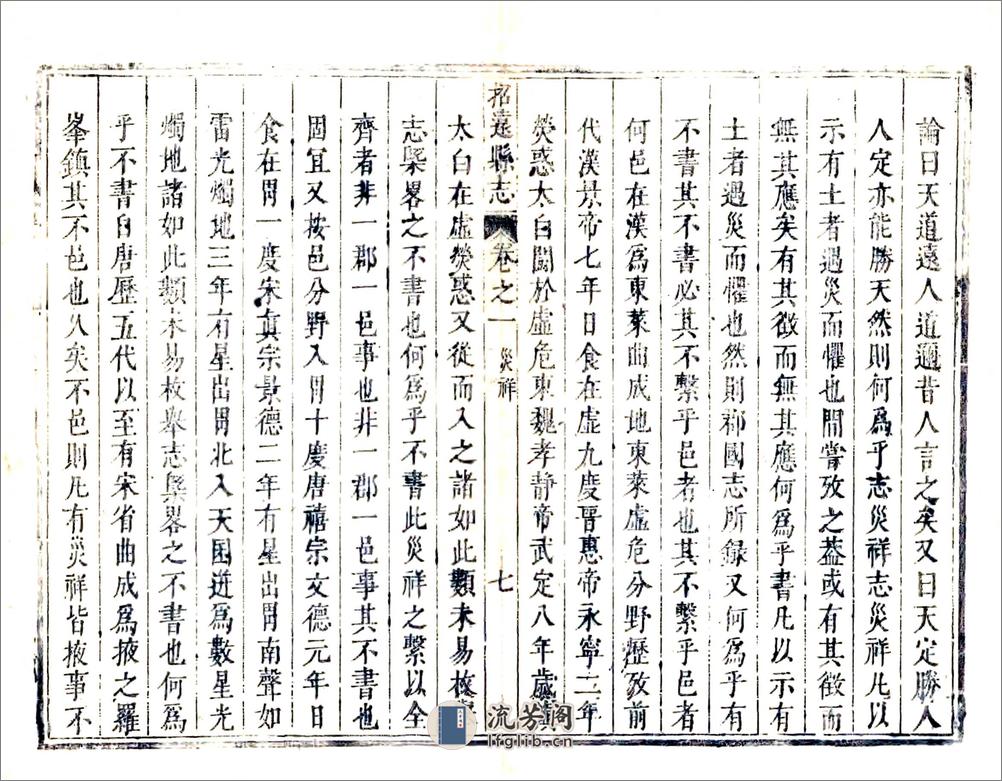 論曰天道遠人道邇昔人言之矣又曰天定勝人
人定亦能勝天然則何爲乎志災祥志災祥凡以
示有土者遇災而懼也間嘗攷之葢或有其徵而
無其應矣有其徵而無其應何爲乎書凡以示有
土者遇災而懼也然則郡國志所録又何爲乎有
不書其不書必其不繫乎邑者也其不繫乎邑者
何邑在漢爲東萊曲成地東萊虛危分野歷攷前
代漢景帝七年日食在虛九度晉惠帝永寧二年
熒惑太白鬬於虛危東魏孝静帝武定八年歲鎮
招遠縣志 卷之一 災祥 七
太白在虛熒惑又從而入之諸如此類未易枚舉
志槩畧之不書也何爲乎不書此災祥之繫以全
齊者非一郡一邑事也非一郡一邑事其不書也
固宜又按邑分野入胃十度唐禧宗文德元年日
食在胃一度宋真宗景德二年有星出胃南聲如
雷光燭地三年有星出胃北入天囷迸爲數星光
燭地諸如此類未易枚舉志槩畧之不書也何爲
乎不書自唐歷五代以至有宋省曲成爲掖之羅
峯鎮其不邑也久矣不邑則凡有災祥皆掖事不
流芳閣
lfglib.cn